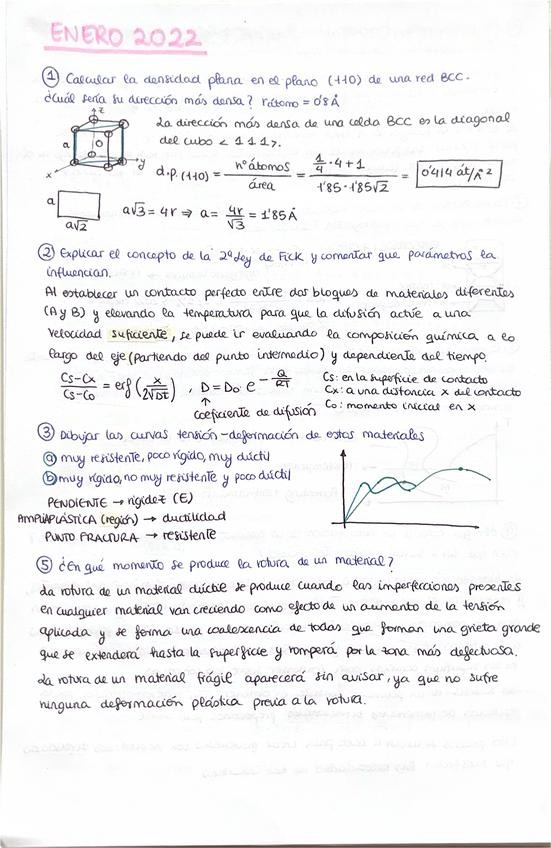 ENERO 2022
① Calcular la densidad plana en el plano (110) de una red BCC.
¿Cuál sería su dirección más densa? rátomo = 0'8 Å
z
a
y
x
La dirección más densa de una celda BCC es la diagonal
del cubo < 1 1 1 >.
d.p. (110) = nº átomos / área = (1/4 · 4 + 1) / (1'85 · 1'85√2) = 0'414 át/Å²
a
a√2
a√3 = 4r ⇒ a = 4r/√3 = 1'85 Å
② Explicar el concepto de la 2ª ley de Fick y comentar que parámetros la
influencian.
Al establecer un contacto perfecto entre dos bloques de materiales diferentes
(A y B) y elevando la temperatura para que la difusión actúe a una
velocidad suficiente, se puede ir evaluando la composición química a lo
largo del eje (partiendo del punto intermedio) y dependiente del tiempo.
(Cs-Cx)/(Cs-Co) = erf (x/(2√Dt)) , D = Do · e^(-Q/RT)
↑
coeficiente de difusión
Cs: en la superficie de contacto
Cx: a una distancia x del contacto
Co: momento inicial en x
③ Dibujar las curvas tensión-deformación de estos materiales
ⓐ muy resistente, poco rígido, muy dúctil
ⓑ muy rígido, no muy resistente y poco dúctil
PENDIENTE → rigidez (E)
AMPLIA PLÁSTICA (región) → ductilidad
PUNTO FRACTURA → resistente
⑤ ¿En qué momento se produce la rotura de un material?
La rotura de un material dúctil se produce cuando las imperfecciones presentes
en cualquier material van creciendo como efecto de un aumento de la tensión
aplicada y se forma una coalescencia de todas que forman una grieta grande
que se extenderá hasta la superficie y romperá por la zona más defectuosa.
La rotura de un material frágil aparecerá sin avisar, ya que no sufre
ninguna deformación plástica previa a la rotura.